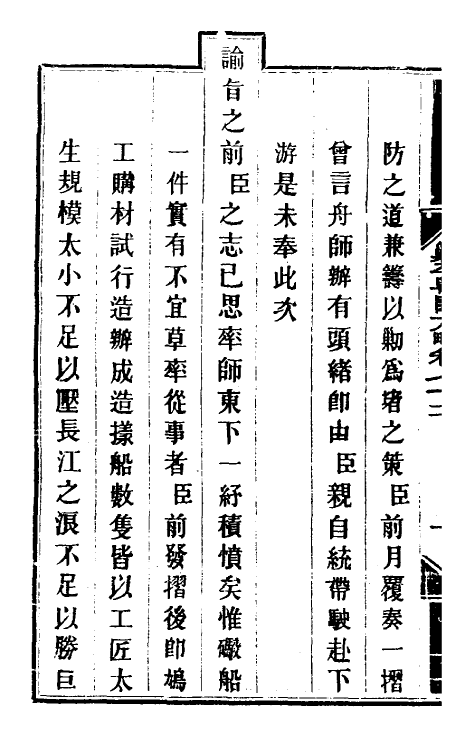 防之道兼籌以剿爲堵之策臣前月覆奏一摺
曾言舟師辦有頭緒即由臣親自統帶駛赴下
游是未奉此次
諭旨之前臣之志已思率師東下一紓積憤矣惟礮船
一件實有不宜草率從事者臣前發摺後即鳩
工購材試行造辦成造樣船數隻皆以工匠太
生規模太小不足以壓長江之浪不足以勝巨